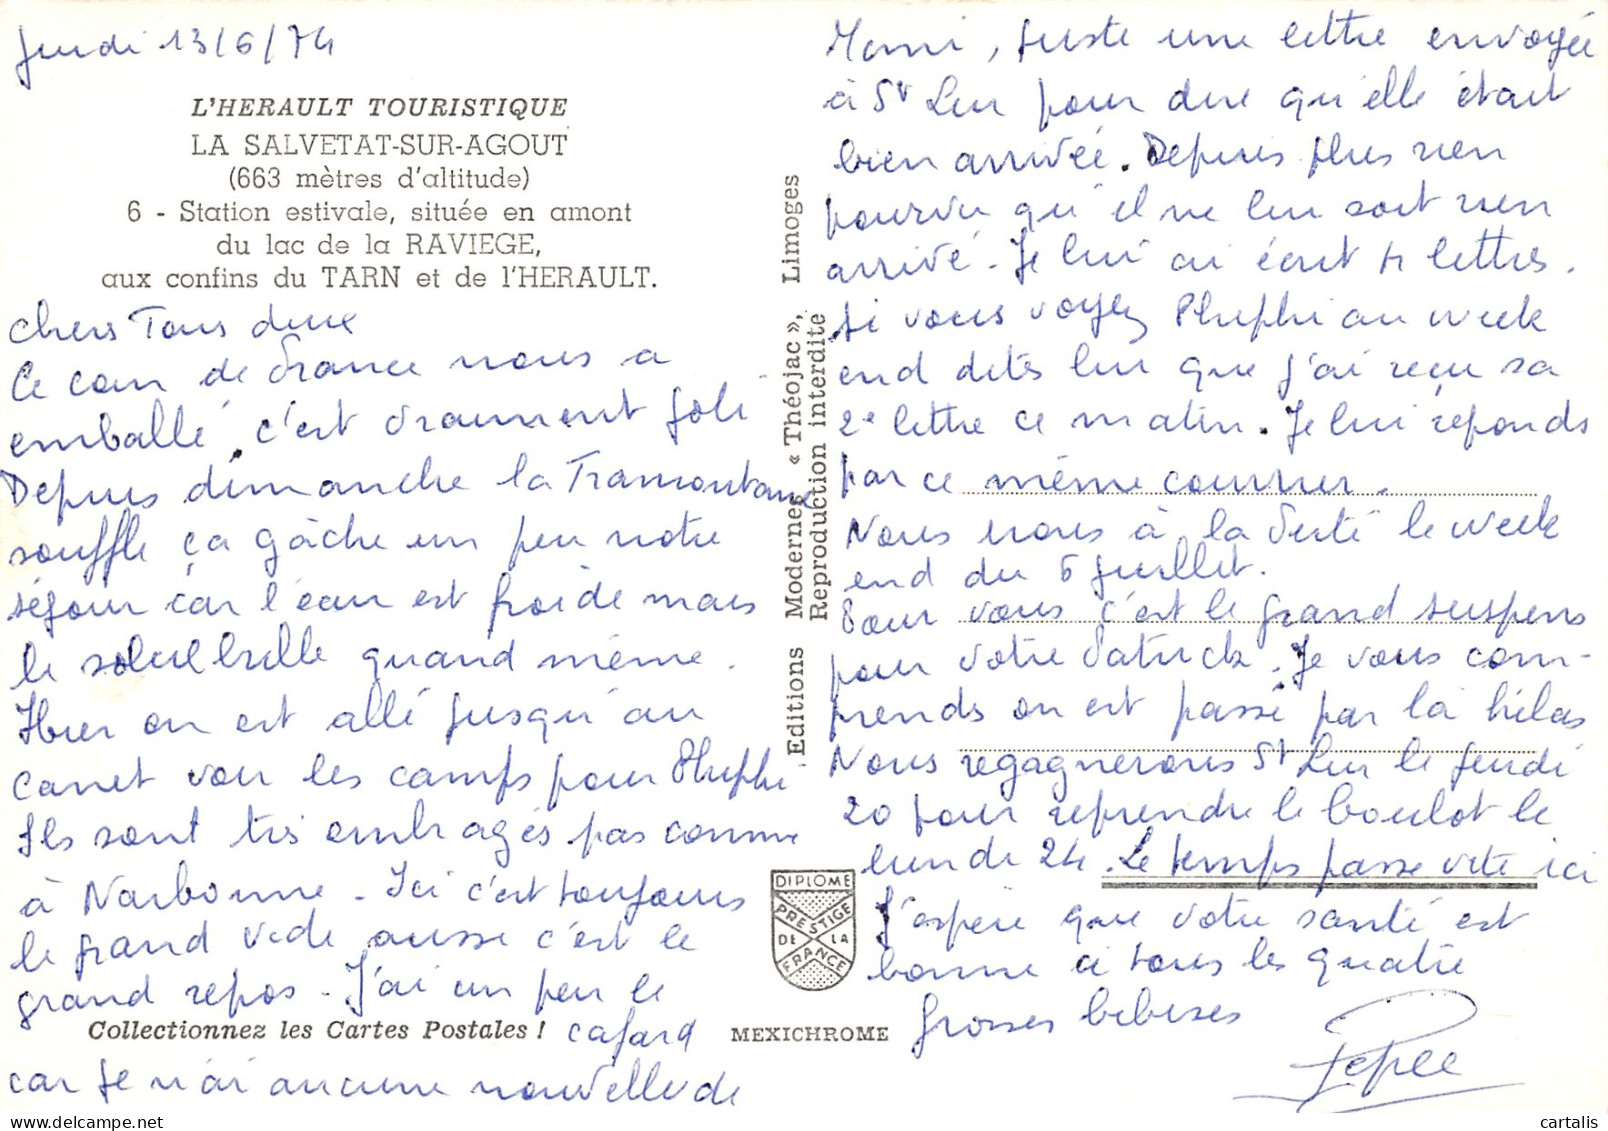 Jeudi 13/6/74
L'HERAULT TOURISTIQUE
LA SALVETAT-SUR-AGOUT
(663 mètres d'altitude)
6 - Station estivale, située en amont
du lac de la RAVIEGE,
aux confins du TARN et de l'HERAULT.
Chers Tous deux
Ce coin de France nous a
emballé, c'est vraiment joli
Depuis dimanche la Tramontane
souffle ça gâche un peu notre
séjour car l'eau est froide mais
le soleil brille quand même.
Hier on est allé jusqu'au
Canet voir les camps pour Phiphi.
Ils sont très ombragés pas comme
à Narbonne. Ici c'est toujours
le grand vide aussi c'est le
grand repos. J'ai un peu le
Collectionnez les Cartes Postales !
cafard
car je n'ai aucune nouvelle de
Editions Modernes « Théojac », Limoges
Reproduction interdite
DIPLOME
PRESTIGE
DE LA
FRANCE
MEXICHROME
Mami, juste une lettre envoyée
à St Leu pour dire qu'elle était
bien arrivée. Depuis plus rien
pourvu qu'il ne lui soit rien
arrivé. Je lui ai écrit 4 lettres.
Si vous voyez Phiphi au week
end dites lui que j'ai reçu sa
2e lettre ce matin. Je lui réponds
par ce même courrier.
Nous irons à la Ferté le week
end du 6 juillet.
Pour vous c'est le grand suspens
pour votre Patrick. Je vous com-
prends on est passé par là hélas
Nous regagnerons St Leu le jeudi
20 pour reprendre le boulot le
lundi 24. Le temps passe vite ici
J'espère que votre santé est
bonne à tous les quatre
Grosses bibises
Pépée